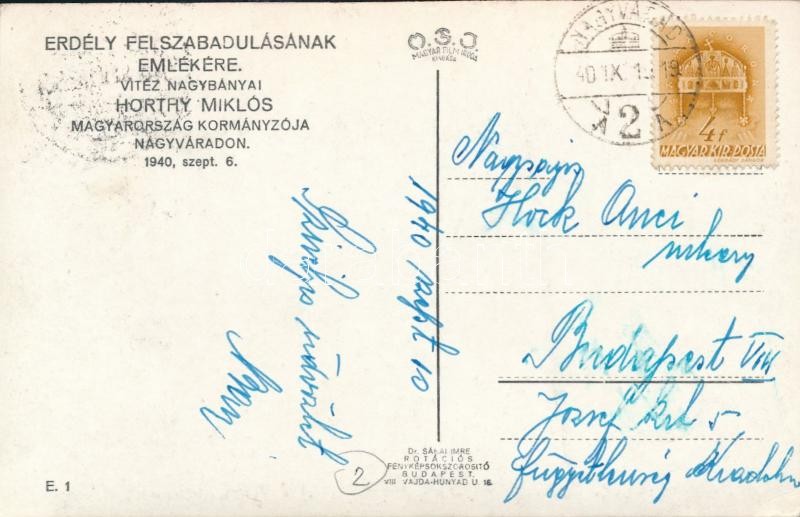 ERDÉLY FELSZABADULÁSÁNAK
EMLÉKÉRE.
VITÉZ NAGYBÁNYAI
HORTHY MIKLÓS
MAGYARORSZÁG KORMÁNYZÓJA
NAGYVÁRADON.
1940, szept. 6.
O.S.J.
MAGYAR FILM IRODA
KIADÁSA
NAGYVÁRAD
40 IX
A 2 A
4f
MAGYAR KIR. POSTA
Nagyságos
Hock Anci
urhölgy
Budapest VIII
József krt 5
1940 szept 10
Dr. SÁRAI IMRE
ROTÁCIÓS
FÉNYKÉPSOKSZOROSITÓ
BUDAPEST,
VIII VAJDA-HUNYAD U. 16.
2
E. 1